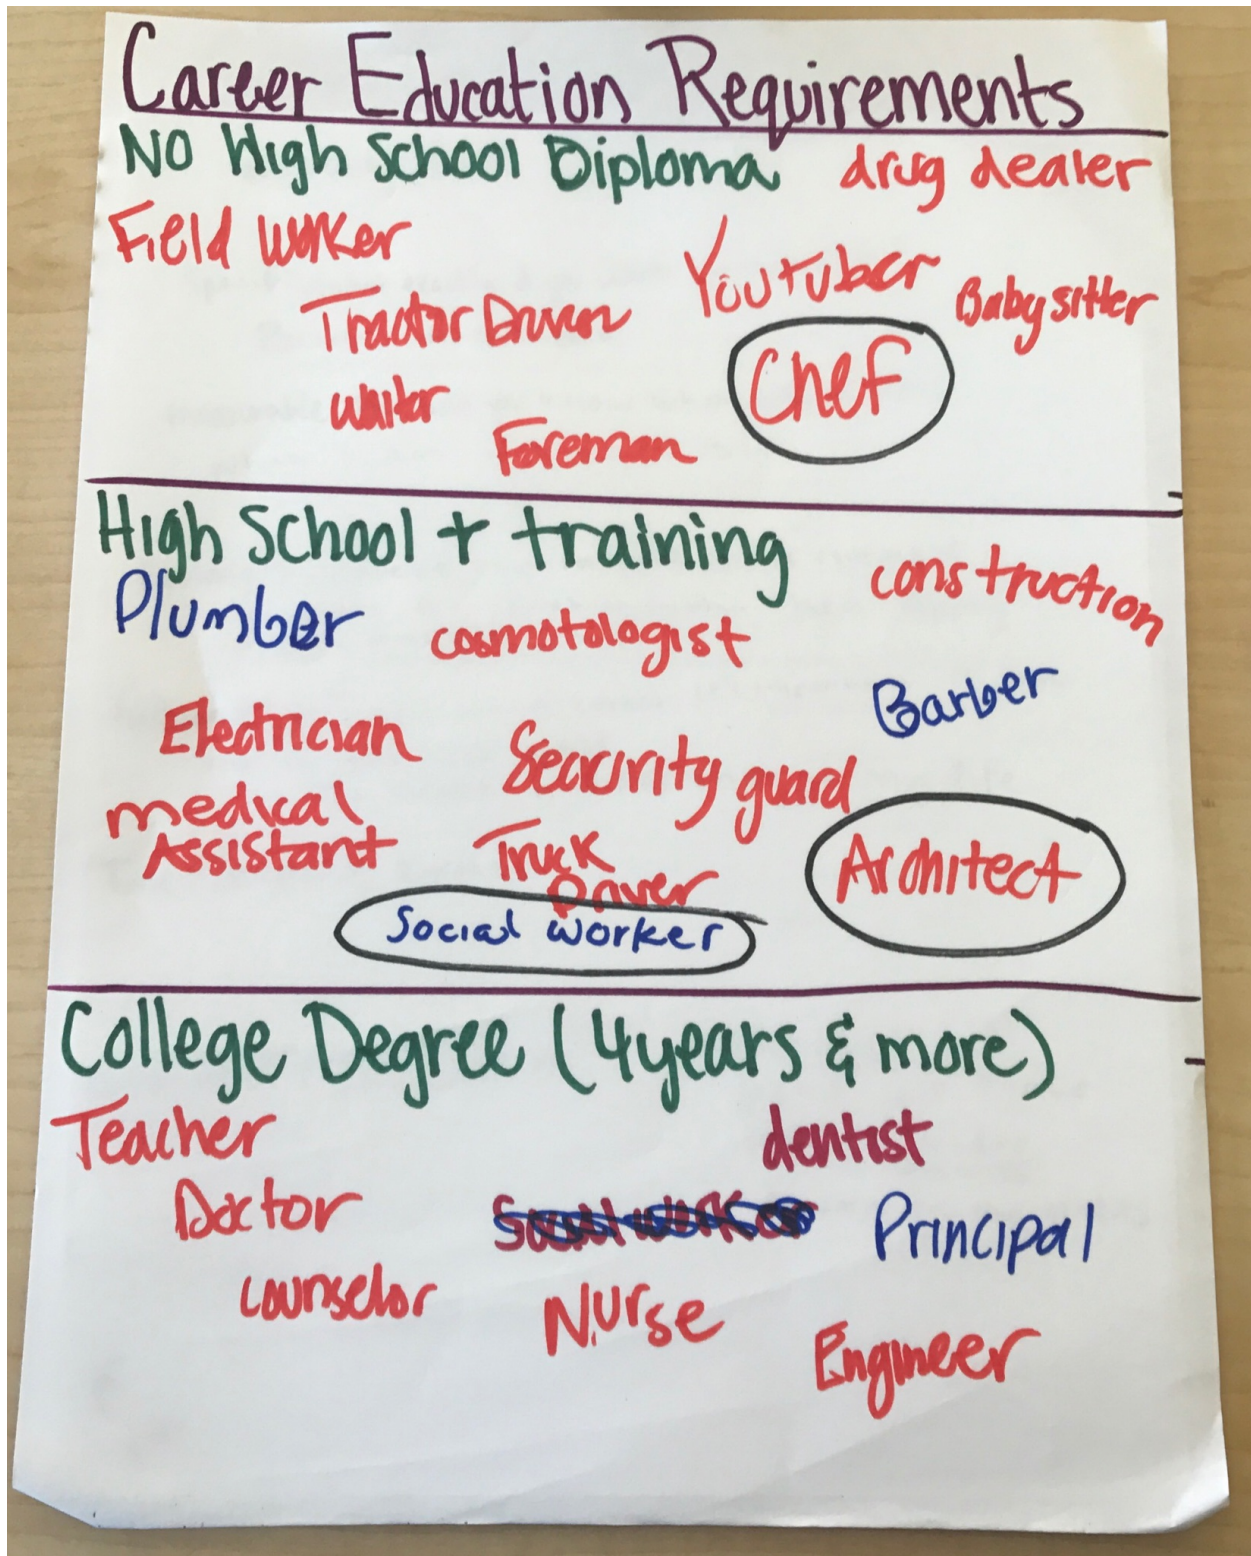 Career Education Requirements
No High School Diploma
drug dealer
Field Worker
Youtuber
Babysitter
Tractor Driver
Chef
Waiter
Foreman
High School + training
construction
Plumber
cosmotologist
Barber
Electrician
Seacurity guard
medical
Assistant
Truck
Driver
Architect
Social worker
College Degree (4years & more)
Teacher
dentist
Doctor
Social worker
Principal
Counselor
Nurse
Engineer